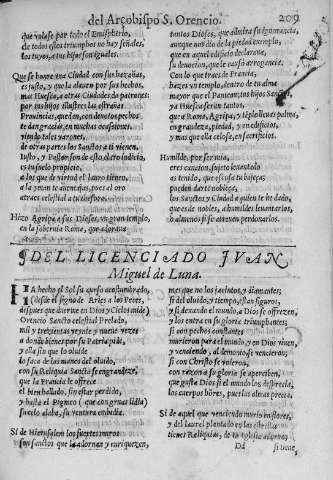 del Arçobispo S. Orencio. 209
que vola se por todo el Emispherio,
de todos ellos triumphos no hay señales,
los tuyos, a tus hijos son iguales.
Que se honre una Ciudad con sus hazañas,
es justo, y que la alaben por sus hechos,
mas Huesca, a otras Ciudades de patrañas
por sus hijos illustres las estrañas
Provincias, quedan, con devotos pechos
te dan gracias, en muchas ocasiones
viendo tales varones,
de otras partes los Sanctos a ti vienen.
Justo, y Pastor son de esto claro indicio,
es tu suelo propicio,
a los que de virtud el Lauro tienen,
a la yman te assemejas, pues al oro
atraes celestial a tu thesoro.
Hizo Agripa a sus Dioses, un gran templo,
en la sobervia Roma, que adorava
tantos Dioses, que admira su ignorancia,
aunque nos dio de la piedad exemplo,
que en aquel edificio declarava,
su devocion, que le causò arrogancia.
Con lo que traes de Francia,
hazes un templo, dentro de tu alma
mayor que el Panteon; tus hijos Sanctos
ya Huesca seran tantos,
que a Roma, Agripa, y templo lleves palma,
en grandeza, piedad, y en edificios,
y mas que ella celosa, en sacrificios.
Humilde, por ser mia,
eres cancion, sujeto levantado
as tenido, que escusa tu baxeza
pueden darte nobleza,
los Sanctos, y Ciudad a quien te he dado,
que es de nobles, humildes levantarlos,
o al menos si se atreven perdonarlos.
DEL LICENCIADO JVAN
Miguel de Luna.
HA hecho el Sol su curso acostumbrado,
(desde el signo de Aries a los Peces,
despues que duerme en Dios y Cielos mide)
Orencio Sancto celestial Prelado,
mil y trezientas veynte y nueve vezes
a donde bienes por su Patria pide,
y ella sin que lo olvide
lo saca de las manos del olvido,
con su Reliquia Sancta se engrandeze,
que la Francia le ofrece
el bien hallado, sin estar perdido,
y hasta el Pigmeo (que con grues lidia)
suelo alaba, su ventura embidia.
Si de Hierusalem los fuertes muros
son sanctos que la adornan y enriquezen,
mas que no los jacintos, y diamantes;
si del olvido, y tiempo, estan seguros,
y si de mando el mundo, a Dios se ofrezen,
y los entra en su gloria triumphantes;
si con pechos constantes
murieron para el mundo, y en Dios viven
y venciendo, al demonio se vencieron;
si con Christo se vnieron,
con razon a su gloria se aperciben,
que gusta Dios si el mundo los desprecia,
los cuerpos pobres, puertas almas precia.
Si de aquel que venciendo murio invictore,
y del laurel plantado en las estrellas
tienes Reliquias, de tu Iglesia adorno;
Dd si tiene